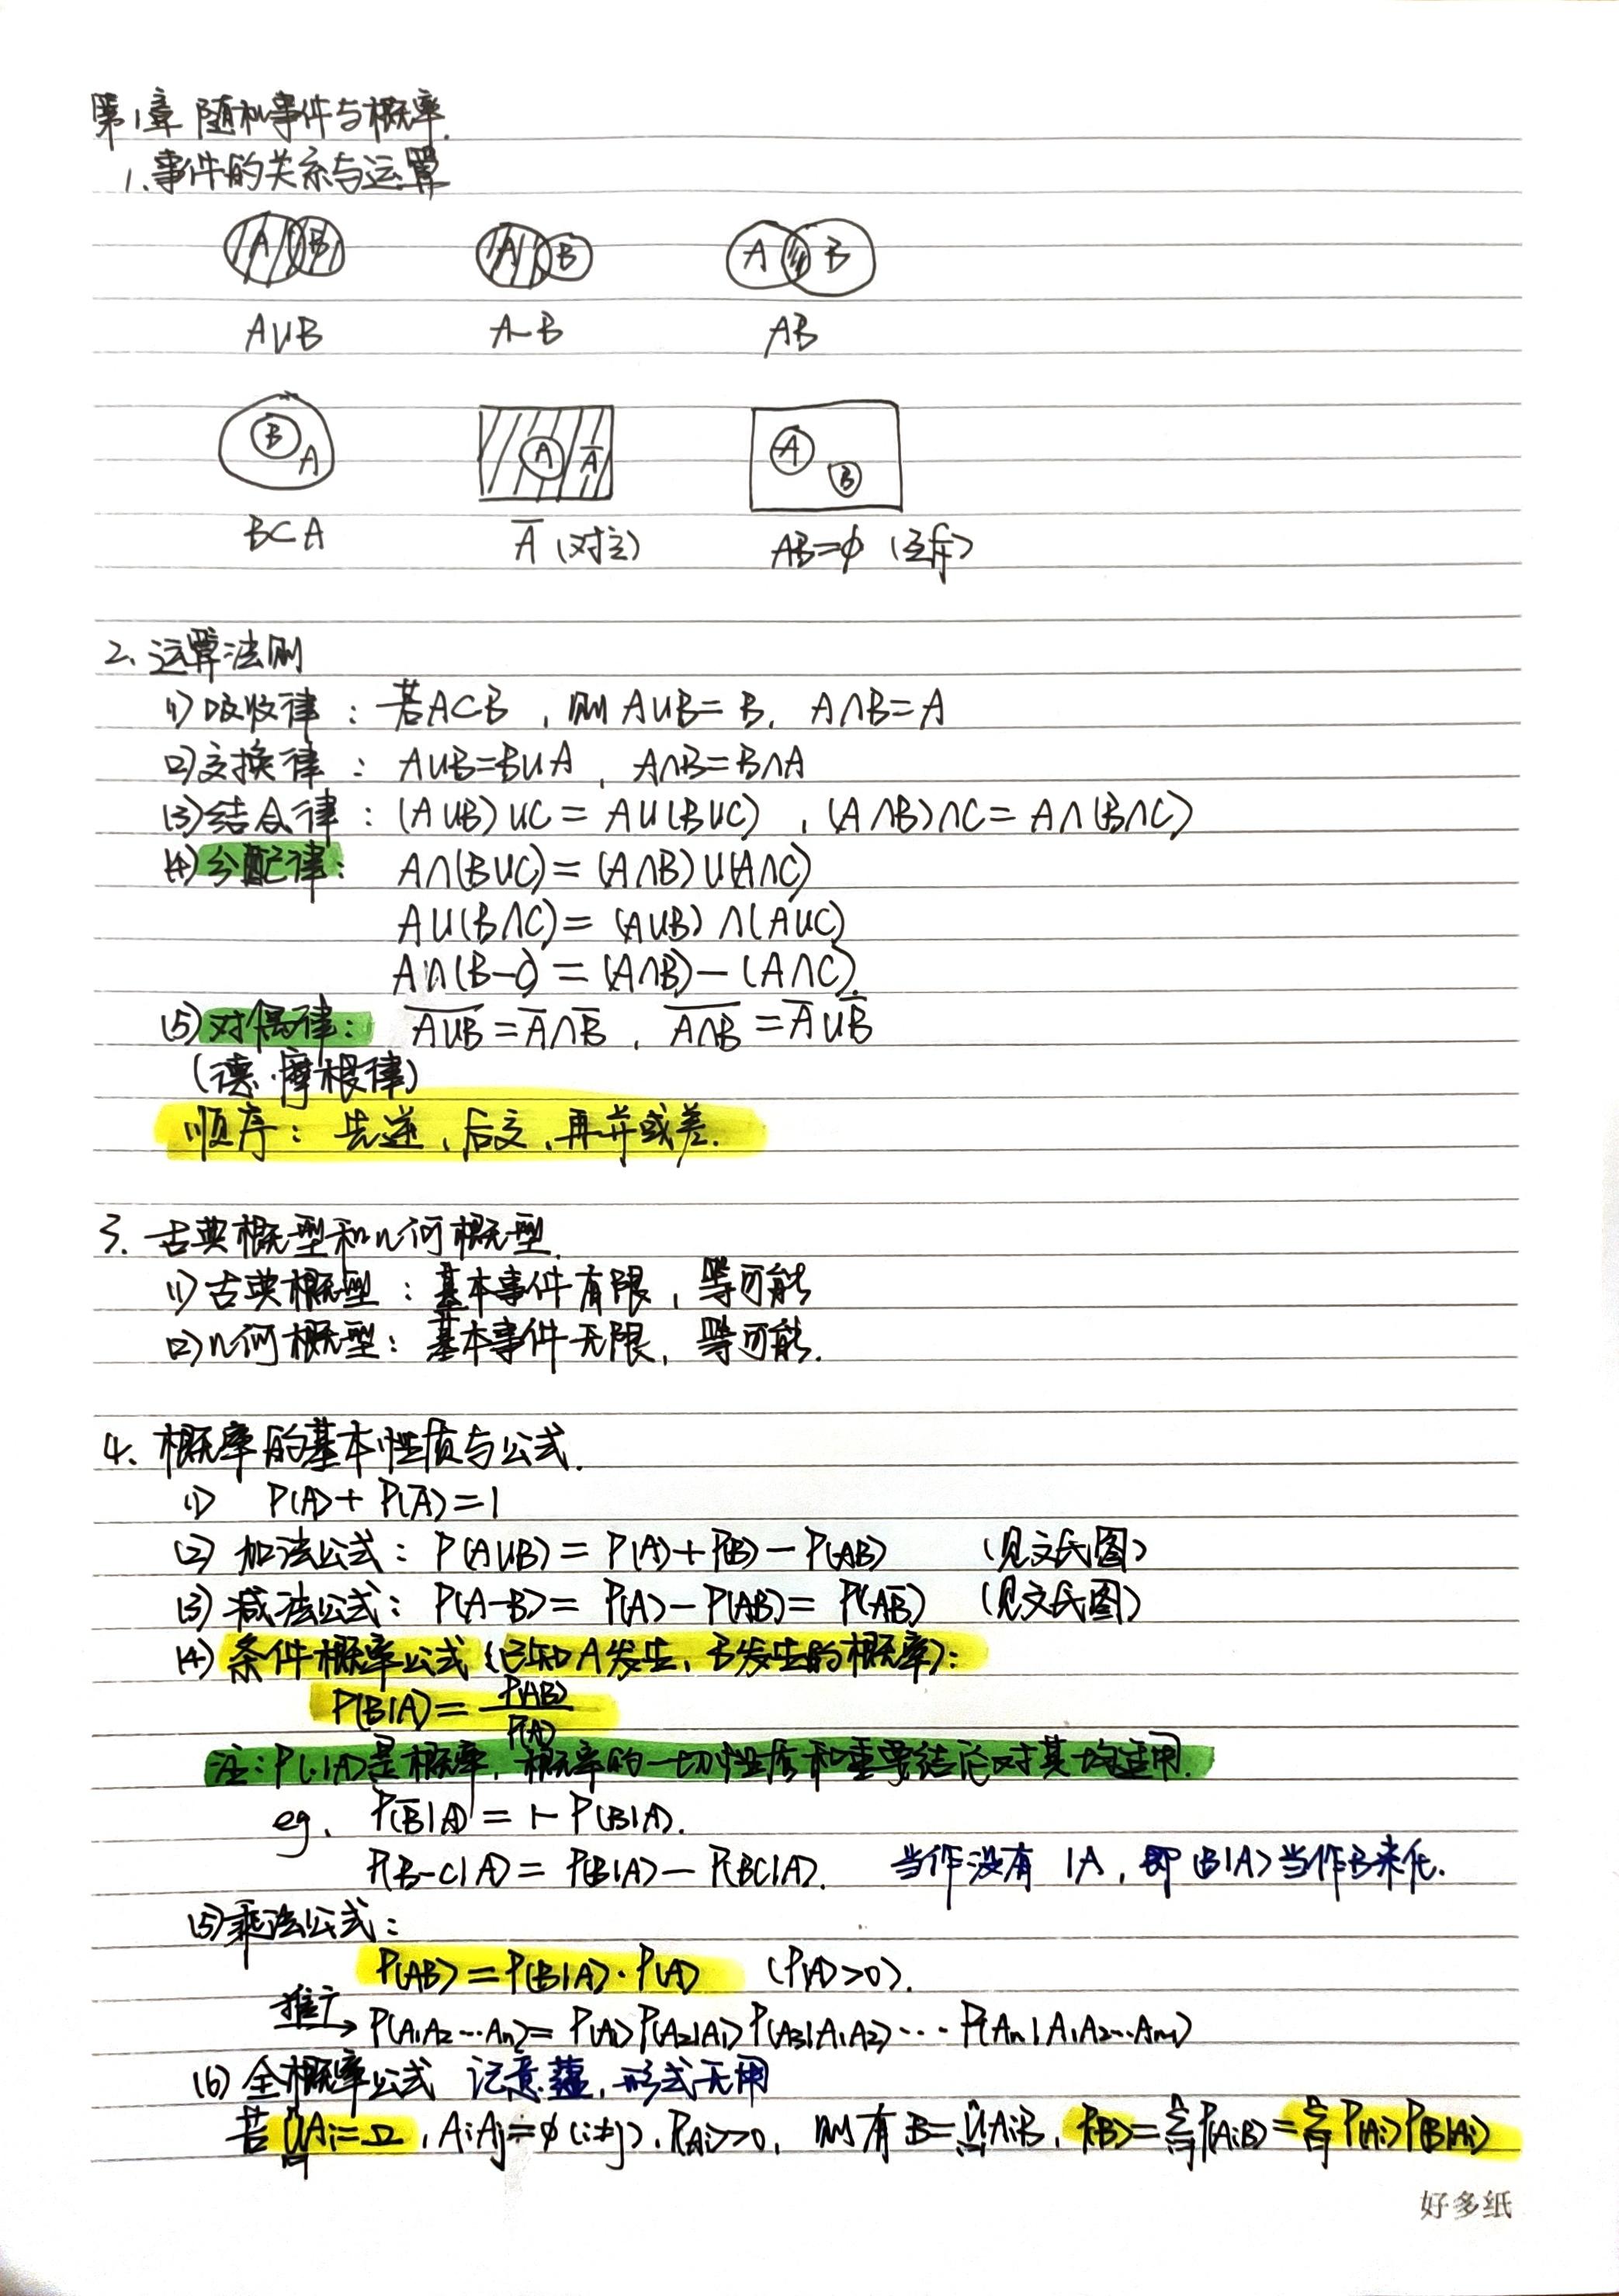 第1章 随机事件与概率.
1.事件的关系与运算
A B A B A B
A∪B A-B AB
B A A A̅ A B
B⊂A A̅(对立) AB=ϕ (互斥)
2.运算法则
(1)吸收律:若A⊂B,则A∪B=B, A∩B=A
(2)交换律:A∪B=B∪A, A∩B=B∩A
(3)结合律:(A∪B)∪C=A∪(B∪C),(A∩B)∩C=A∩(B∩C)
(4)分配律: A∩(B∪C)=(A∩B)∪(A∩C)
A∪(B∩C)=(A∪B)∩(A∪C)
A∩(B-C)=(A∩B)-(A∩C).
(5)对偶律: \overline{A∪B}=A̅∩B̅, \overline{A∩B}=A̅∪B̅
(德·摩根律)
顺序:先逆,后交,再并或差.
3.古典概型和几何概型.
(1)古典概型:基本事件有限,等可能
(2)几何概型:基本事件无限,等可能.
4.概率的基本性质与公式.
(1) P(A)+P(A̅)=1
(2)加法公式:P(A∪B)=P(A)+P(B)-P(AB) (见文氏图)
(3)减法公式:P(A-B)=P(A)-P(AB)=P(AB̅) (见文氏图)
(4)条件概率公式(已知A发生,B发生的概率):
P(B|A)=P(AB)/P(A)
注:P(·|A)是概率,概率的一切性质和重要结论对其均适用.
eg. P(B̅|A)=1-P(B|A).
P(B-C|A)=P(B|A)-P(BC|A). 当作没有|A,即(B|A)当作B来化.
(5)乘法公式:
P(AB)=P(B|A)·P(A) (P(A)>0).
推广→P(A₁A₂···Aₙ)=P(A₁)P(A₂|A₁)P(A₃|A₁A₂)···P(Aₙ|A₁A₂···Aₙ₋₁)
(6)全概率公式 记意蕴,形式无用
若⋃ⁿᵢ₌₁Aᵢ=Ω,AᵢAⱼ=ϕ(i≠j),P(Aᵢ)>0,则有B=⋃ⁿᵢ₌₁AᵢB,P(B)=∑ⁿᵢ₌₁P(AᵢB)=∑ⁿᵢ₌₁P(Aᵢ)P(B|Aᵢ)
好多纸